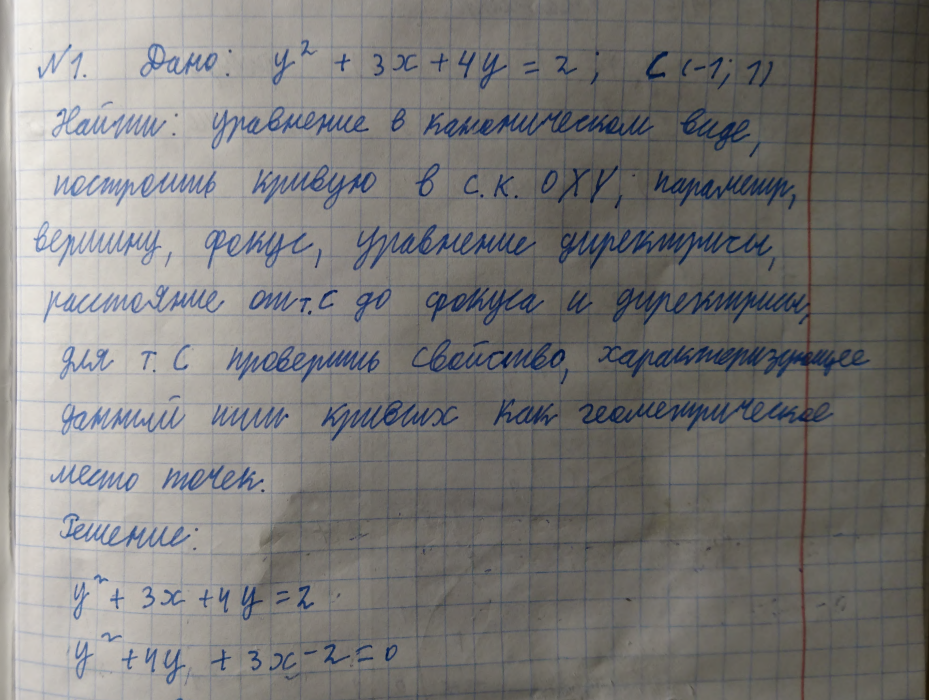 №1. Дано: y² + 3x + 4y = 2; C (-1; 1)
Найти: уравнение в каноническом виде,
построить кривую в с.к. OXY; параметр,
вершину, фокус, уравнение директрисы,
расстояние от т. C до фокуса и директрисы,
для т. C проверить свойство, характеризующее
данный тип кривых как геометрическое
место точек.
Решение:
y² + 3x + 4y = 2
y² + 4y + 3x - 2 = 0